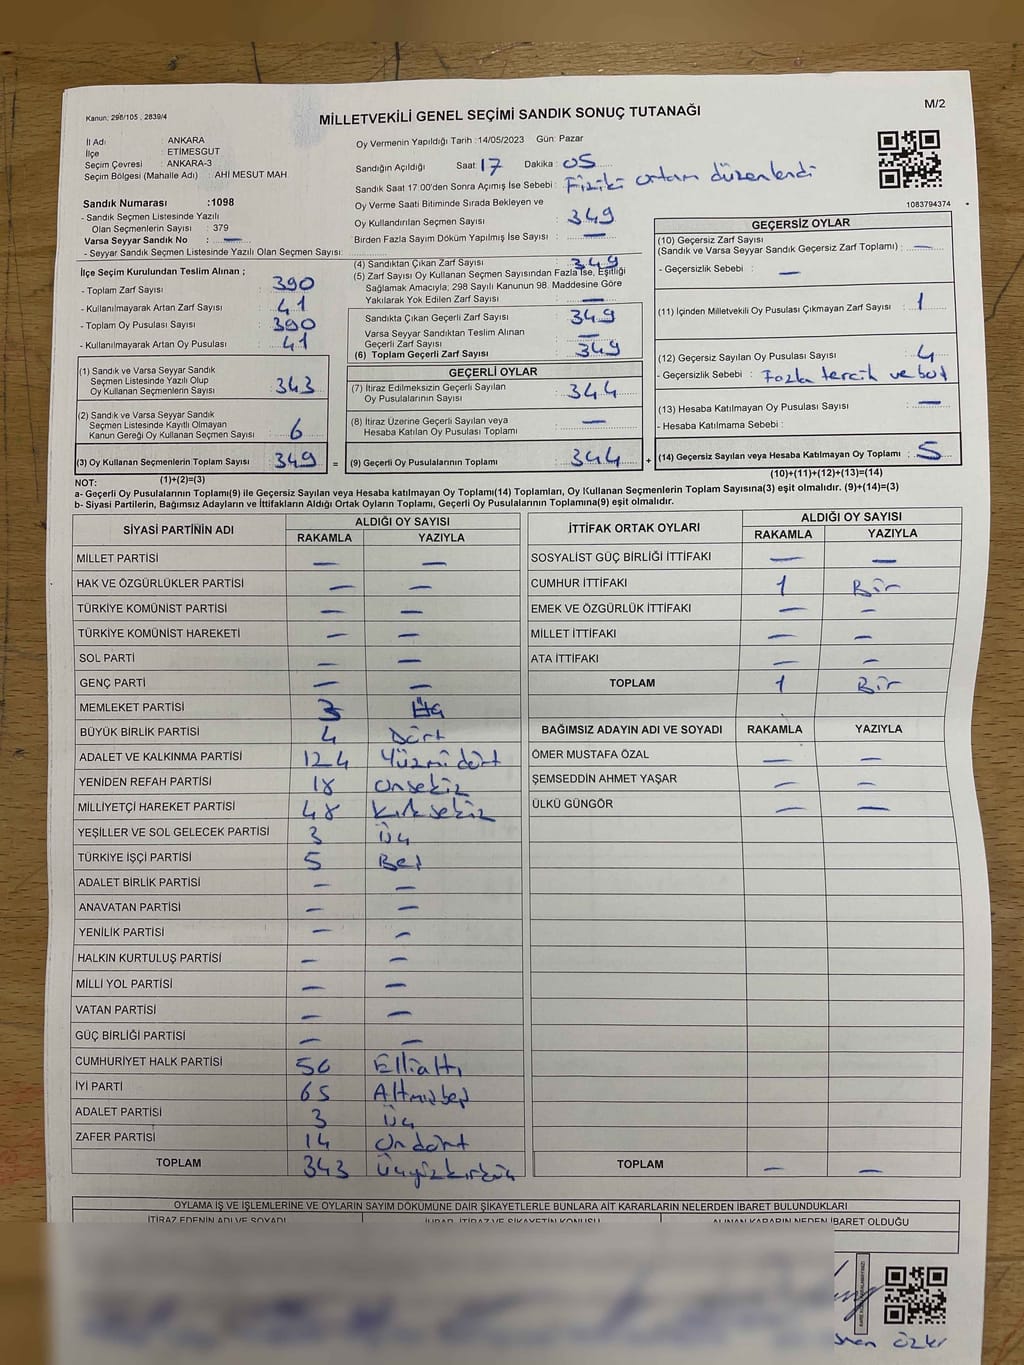 M/2
Kanun: 298/105 , 2839/4
MİLLETVEKİLİ GENEL SEÇİMİ SANDIK SONUÇ TUTANAĞI
İl Adı : ANKARA
İlçe : ETİMESGUT
Seçim Çevresi : ANKARA-3
Seçim Bölgesi (Mahalle Adı) : AHİ MESUT MAH.
Oy Vermenin Yapıldığı Tarih : 14/05/2023 Gün: Pazar
Sandığın Açıldığı Saat: 17 Dakika : 05
Sandık Saat 17.00'den Sonra Açımış İse Sebebi : Fiziki ortam düzenlendi
1083794374
Sandık Numarası :1098
- Sandık Seçmen Listesinde Yazılı
Olan Seçmenlerin Sayısı : 379
Varsa Seyyar Sandık No : —
- Seyyar Sandık Seçmen Listesinde Yazılı Olan Seçmen Sayısı:
Oy Verme Saati Bitiminde Sırada Bekleyen ve
Oy Kullandırılan Seçmen Sayısı : 349
Birden Fazla Sayım Döküm Yapılmış İse Sayısı : —
İlçe Seçim Kurulundan Teslim Alınan ;
- Toplam Zarf Sayısı : 390
- Kullanılmayarak Artan Zarf Sayısı : 41
- Toplam Oy Pusulası Sayısı : 390
- Kullanılmayarak Artan Oy Pusulası : 41
(1) Sandık ve Varsa Seyyar Sandık
Seçmen Listesinde Yazılı Olup
Oy Kullanan Seçmenlerin Sayısı : 343
(2) Sandık ve Varsa Seyyar Sandık
Seçmen Listesinde Kayıtlı Olmayan
Kanun Gereği Oy Kullanan Seçmen Sayısı : 6
(3) Oy Kullanan Seçmenlerin Toplam Sayısı : 349
(1)+(2)=(3)
(4) Sandıktan Çıkan Zarf Sayısı : 349
(5) Zarf Sayısı Oy Kullanan Seçmen Sayısından Fazla İse, Eşitliği
Sağlamak Amacıyla; 298 Sayılı Kanunun 98. Maddesine Göre
Yakılarak Yok Edilen Zarf Sayısı : —
Sandıkta Çıkan Geçerli Zarf Sayısı : 349
Varsa Seyyar Sandıktan Teslim Alınan
Geçerli Zarf Sayısı : —
(6) Toplam Geçerli Zarf Sayısı : 349
GEÇERLİ OYLAR
(7) İtiraz Edilmeksizin Geçerli Sayılan
Oy Pusulalarının Sayısı : 344
(8) İtiraz Üzerine Geçerli Sayılan veya
Hesaba Katılan Oy Pusulası Toplamı : —
= (9) Geçerli Oy Pusulalarının Toplamı : 344
GEÇERSİZ OYLAR
(10) Geçersiz Zarf Sayısı
(Sandık ve Varsa Seyyar Sandık Geçersiz Zarf Toplamı) : —
- Geçersizlik Sebebi : —
(11) İçinden Milletvekili Oy Pusulası Çıkmayan Zarf Sayısı : 1
(12) Geçersiz Sayılan Oy Pusulası Sayısı : 4
- Geçersizlik Sebebi : Fazla tercih ve boş
(13) Hesaba Katılmayan Oy Pusulası Sayısı : —
- Hesaba Katılmama Sebebi :
+ (14) Geçersiz Sayılan veya Hesaba Katılmayan Oy Toplamı : 5
(10)+(11)+(12)+(13)=(14)
NOT:
a- Geçerli Oy Pusulalarının Toplamı(9) ile Geçersiz Sayılan veya Hesaba katılmayan Oy Toplamı(14) Toplamları, Oy Kullanan Seçmenlerin Toplam Sayısına(3) eşit olmalıdır. (9)+(14)=(3)
b- Siyasi Partilerin, Bağımsız Adayların ve İttifakların Aldığı Ortak Oyların Toplamı, Geçerli Oy Pusulalarının Toplamına(9) eşit olmalıdır.
SİYASİ PARTİNİN ADI ALDIĞI OY SAYISI
RAKAMLA YAZIYLA
MİLLET PARTİSİ — —
HAK VE ÖZGÜRLÜKLER PARTİSİ — —
TÜRKİYE KOMÜNİST PARTİSİ — —
TÜRKİYE KOMÜNİST HAREKETİ — —
SOL PARTİ — —
GENÇ PARTİ — —
MEMLEKET PARTİSİ 3 Üç
BÜYÜK BİRLİK PARTİSİ 4 Dört
ADALET VE KALKINMA PARTİSİ 124 Yüzmidört
YENİDEN REFAH PARTİSİ 18 Onsekiz
MİLLİYETÇİ HAREKET PARTİSİ 48 Kırksekiz
YEŞİLLER VE SOL GELECEK PARTİSİ 3 Üç
TÜRKİYE İŞÇİ PARTİSİ 5 Beş
ADALET BİRLİK PARTİSİ — —
ANAVATAN PARTİSİ — —
YENİLİK PARTİSİ — —
HALKIN KURTULUŞ PARTİSİ — —
MİLLİ YOL PARTİSİ — —
VATAN PARTİSİ — —
GÜÇ BİRLİĞİ PARTİSİ — —
CUMHURİYET HALK PARTİSİ 56 Ellialtı
İYİ PARTİ 65 Altmışbeş
ADALET PARTİSİ 3 Üç
ZAFER PARTİSİ 14 Ondört
TOPLAM 343 Üçyüzkırküç
İTTİFAK ORTAK OYLARI ALDIĞI OY SAYISI
RAKAMLA YAZIYLA
SOSYALİST GÜÇ BİRLİĞİ İTTİFAKI — —
CUMHUR İTTİFAKI 1 Bir
EMEK VE ÖZGÜRLÜK İTTİFAKI — —
MİLLET İTTİFAKI — —
ATA İTTİFAKI — —
TOPLAM 1 Bir
BAĞIMSIZ ADAYIN ADI VE SOYADI RAKAMLA YAZIYLA
ÖMER MUSTAFA ÖZAL — —
ŞEMSEDDİN AHMET YAŞAR — —
ÜLKÜ GÜNGÖR — —
TOPLAM — —
OYLAMA İŞ VE İŞLEMLERİNE VE OYLARIN SAYIM DÖKÜMÜNE DAİR ŞİKAYETLERLE BUNLARA AİT KARARLARIN NELERDEN İBARET BULUNDUKLARI
İTİRAZ EDENİN ADI VE SOYADI İHBAR, İTİRAZ VE ŞİKAYETİN KONUSU ALINAN KARARIN NEDEN İBARET OLDUĞU